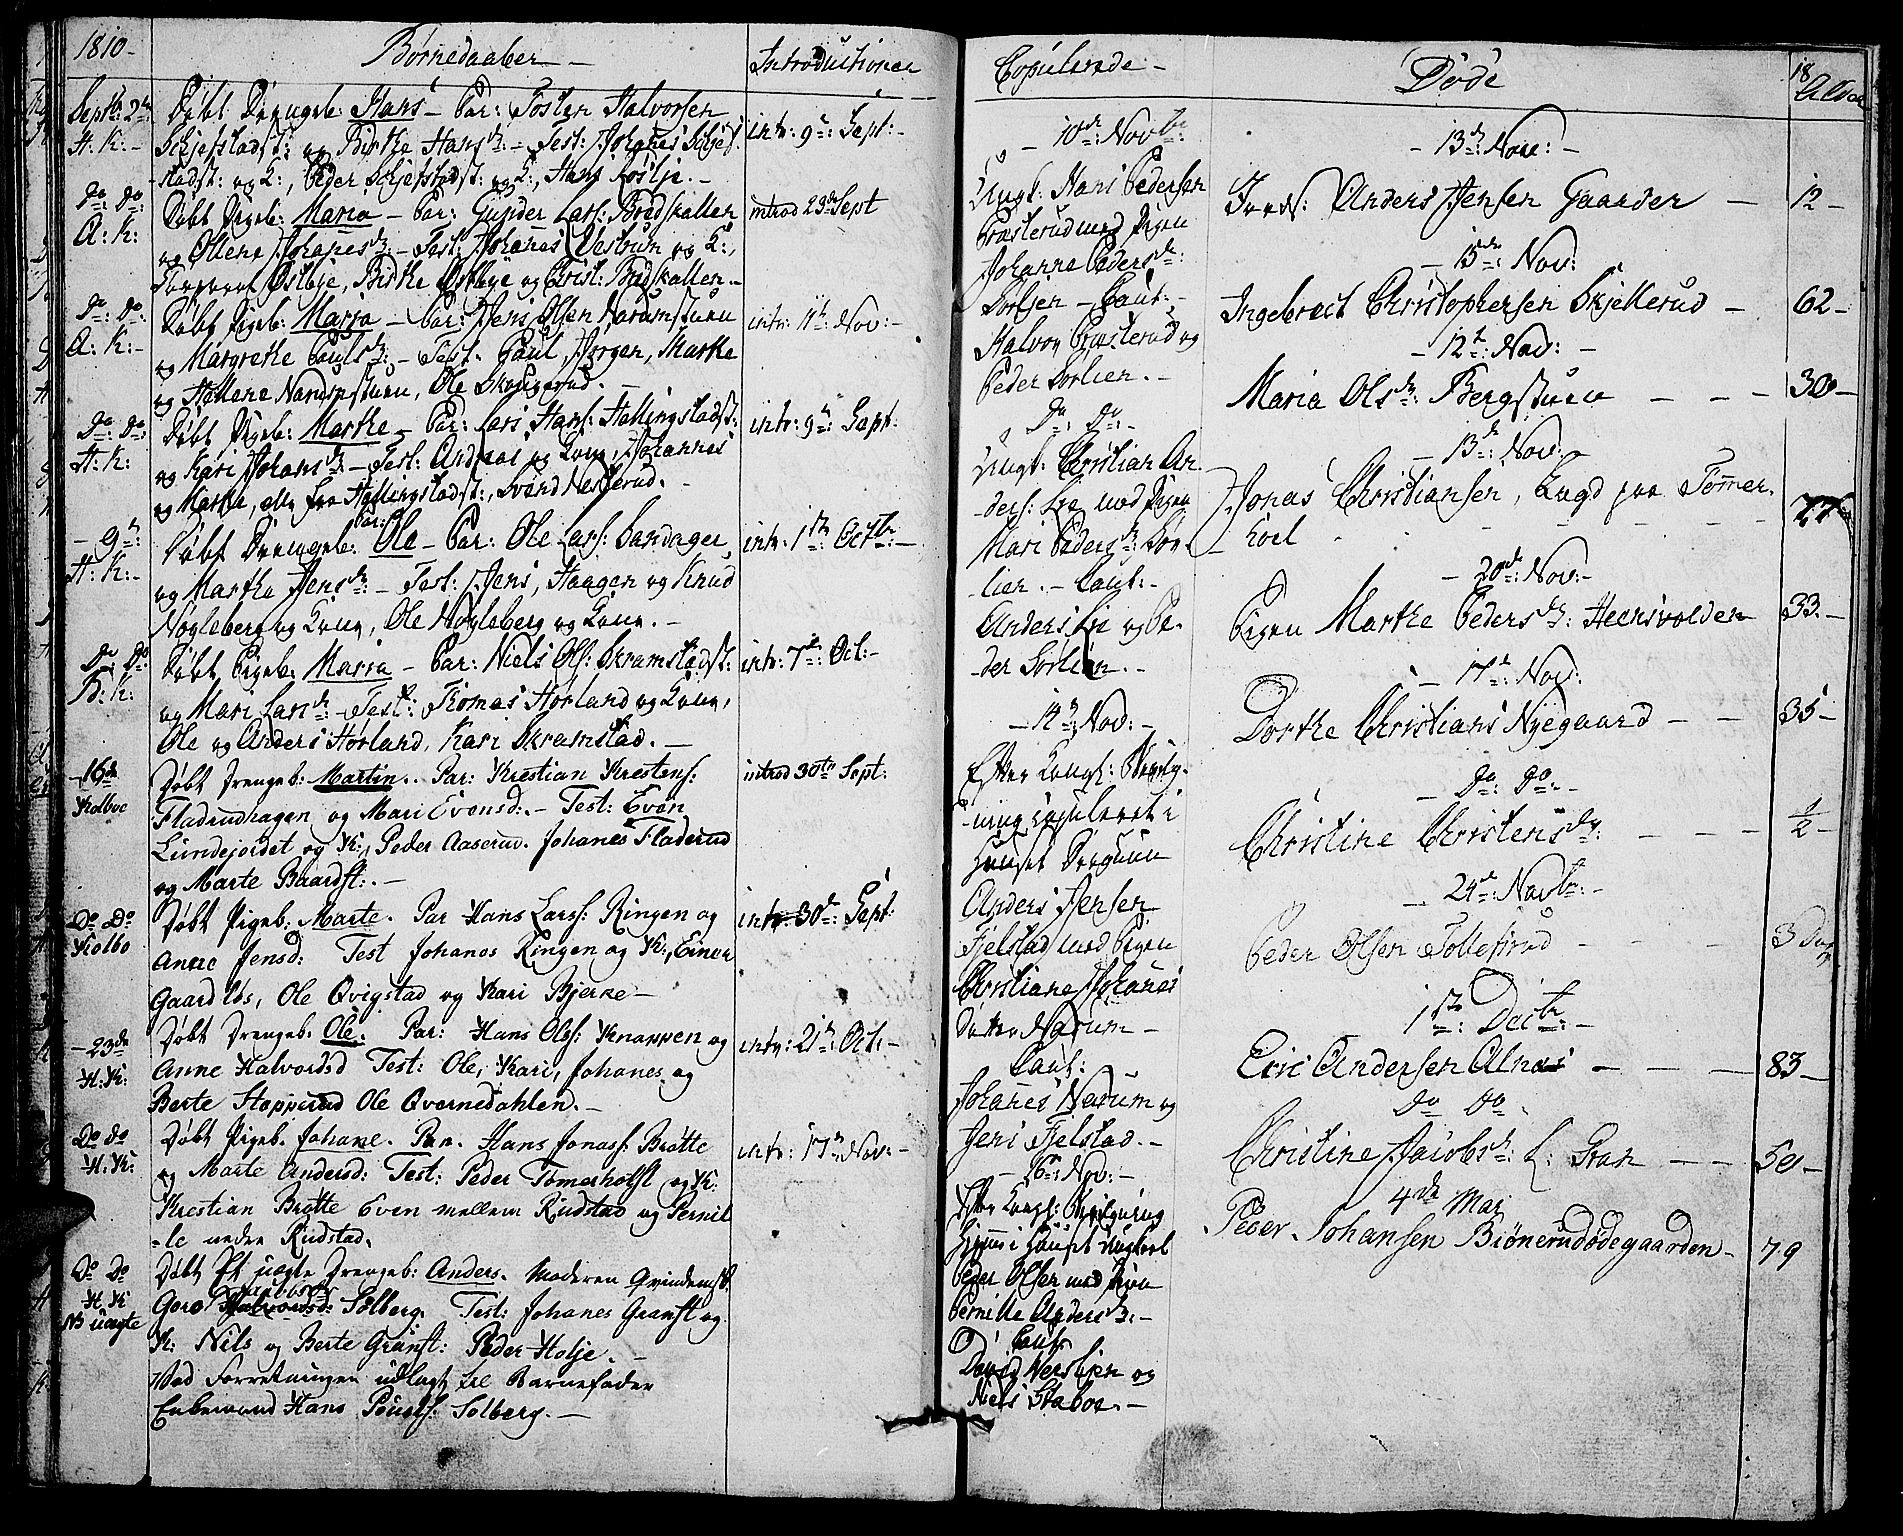 1810-
Børnedaaber -
Introductioner
Septbr: 2den
H: K: -
Døbt Drengeb: Hans - Par: Tosten Halvorsen
Schjefstadst: og Birthe Hansdr: - Test: Johanes Schjef-
stadst: og K:, Peder Schjefstadst: og K:, Hans
intr: 9de Sept: -
Do: Do:
A: K:
Døbt Pigeb: Maria - Par: Gunder Lars: Bredskallen
og Ollene Johanesdr: - Test: Johanes Vestrum og K:,
Østbye, Birthe Østbye og Christ: Bredskallen. -
introd 23de Sept
Do: Do:
A: K: -
Døbt Pigeb: Maria - Par: Jens Olsen Narumstuen
og Margrethe Paulsdr: - Test: Paul, Jørgen, Marthe
og Hallene Narumstuen, Ole
intr: 11te Nov: -
Do: Do:
H: K:
Døbt Pigeb: Marthe - Par: Lars Hans: Hallingstadst:
og Kari Johansdr - Test: Andreas og Kone, Johannes
og Marthe, alle fra Hallingstadst:, Svend Nesterud. -
intr: 9de Sept:
- 9de:
H: K: -
Døbt Drengeb: Ole - Par: Ole Lars: Sandager
og Marthe Jensdr: - Test: Jens, Haagen og Knud
Nøgleberg og Kone, Ole Nøgleberg og Kone. -
intr: 1ste Octbr: -
Do: Do
B: K:
Døbt Pigeb: Maria - Par: Niels Ols: Skramstadst:
og Mari Larsdr: - Test: Thomas Hørland og Kone,
Ole og Anders Hørland, Kari Skramstad. -
intr: 7de: Oct: -
- 16de
Kolboe
Døbt Drengeb: Martin. Par: Krestian Krestens:
Fladrudhagen og Mari Evensd: - Test: Even
Lundejordet og K:, Peder Aaserud. Johanes Fladerud
og Marte Baardst: -
introd 30te Sept:
Do Do
Kolbo
Døbt Pigeb: Marte. Par Hans Larss: Ringen og
Anne Jensd: Test Johanes Ringen og K:, Einer
Gaardløs, Ole Qvigstad og Kari Bjerke -
intr 30te: Sept:
- 23de
H: K:
Døbt Drengeb: Ole. Par: Hans Olss: Knappen og
Anne Halvordsd Test: Ole, Kari, Johanes og
Berte Stopperud Ole Qvernedahlen. -
intr: 21de Oct: -
Do Do
H: K:
Døbt Pigeb. Johane. Par. Hans Jonass: Brøtte
og Marte Andersd: Test: Peder Tømerholst og K:
Krestian Brøtte Even mellem Rudstad og Pernil
-le nedre Rudstad.
intr: 17de Nov: -
Do Do
H: K
NB uægte
Døbt Et uægte Drengeb: Anders. Moderen Qvindemst:
Goro Halvordsd: Solberg. Test: Johanes Granst og
K: Nils og Berte Granst: Peder Holje. -
Ved Forretningen udlagt til Barnefader
Enkemand Hans Pouels: Solberg. -
Copulerede -
- 10de Novbr:
Ungk: Hans Pedersen
Præsterud med Pigen
Johanne Pedersdr:
Sorlien - Caut: -
Halvor Præsterud og
Peder Sorlien. -
Do: Do: -
Ungk: Christian An-
ders: Lie med Pigen
Mari Pedersdr: Sor-
-lien. - Caut: -
Anders Lie og Pe-
der Sorlien. -
- 14de Nov: -
Efter Kongl: Bevilg-
-ning copuleret i
Huuset Dragoun
Anders Jensen
Fjelstad med Pigen
Christiane Johanes
Datter Narum -
Caut:
Johanes Narum og
Jens Fjelstad. -
- 16de: Nov: -
Efter Kongl: Bevilgning
hjemme i Huuset Ungkarl
Peder Olsen med Pigen
Pernille Andersdr: -
Caut:
David Nerslien og
Niels Staboe. -
Døde
18
Alder
- 13de: Nov: -
Anders Jensen Gaarder - 12 -
- 15de: Nov:
Ingebrect Christophersen Skjellerud - 62 -
- 12te: Nov: -
Maria Olsdr: Bergstuen - - - 30 -
- 13de: Nov:
Jonas Christiansen, Lægd paa Tømer-
- hoel - - - - - -
- 20de: Nov: -
Pigen Marthe Pedersdr: Heensvolden 33. -
- 17de Nov:
Dorthe Christians Nyegaard - - 35 -
- Do: Do: -
Christine Christensdr: - - - - 1/2 -
- 24de: Novbr: -
Peder Olsen Tollefsrud - - - - 3 Dage
1ste: Decbr: -
Eric Andersen Alnæs - - - 83 -
Do Do
Christine Jacobsdr: L: Gran - - 50 -
4de Mai
Peder Johansen Biønerudødegaarden - 79